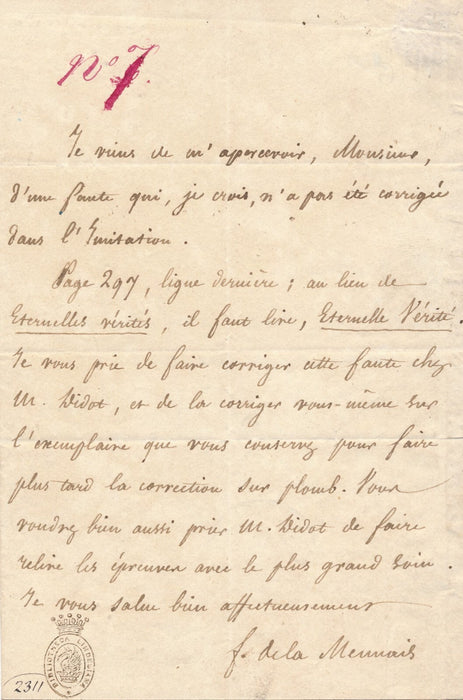 No 7.
Je viens de m'apercevoir, Monsieur,
d'une faute qui, je crois, n'a pas été corrigée
dans l'Imitation.
Page 297, ligne dernière ; au lieu de
Eternelles vérités, il faut lire, Eternelle Vérité.
Je vous prie de faire corriger cette faute chez
M. Didot, et de la corriger vous-même sur
l'exemplaire que vous conservez pour faire
plus tard la correction sur plomb. Vous
voudrez bien aussi prier M. Didot de faire
relire les épreuves avec le plus grand soin.
Je vous salue bien affectueusement
f. de la Mennais
BIBLIOTHECA LINDESIANA
2311